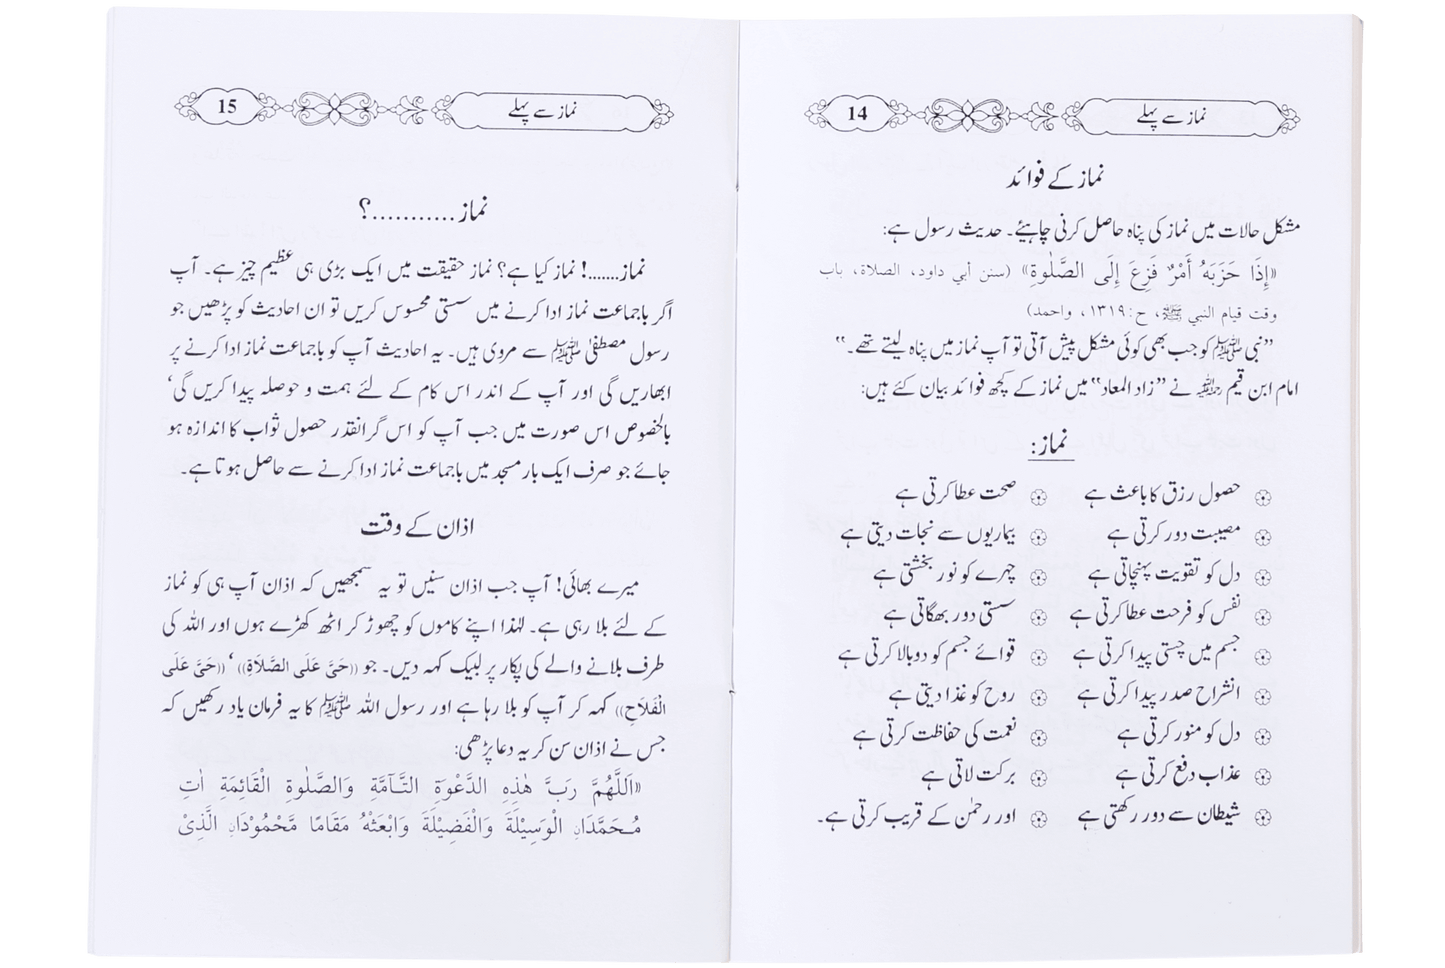 نماز سے پہلے
14
نماز کے فوائد
مشکل حالات میں نماز کی پناہ حاصل کرنی چاہیئے۔ حدیث رسول ہے:
«إِذَا حَزَبَهُ أَمْرٌ فَزِعَ إِلَى الصَّلٰوةِ» (سنن أبي داود، الصلاة، باب
وقت قيام النبي ﷺ، ح:١٣١٩، واحمد)
”نبی ﷺ کو جب بھی کوئی مشکل پیش آتی تو آپ نماز میں پناہ لیتے تھے۔“
امام ابن قیم رحمہ اللہ نے ”زاد المعاد“ میں نماز کے کچھ فوائد بیان کئے ہیں:
نماز:
حصول رزق کا باعث ہے صحت عطا کرتی ہے
مصیبت دور کرتی ہے بیماریوں سے نجات دیتی ہے
دل کو تقویت پہنچاتی ہے چہرے کو نور بخشتی ہے
نفس کو فرحت عطا کرتی ہے سستی دور بھگاتی ہے
جسم میں چستی پیدا کرتی ہے قوائے جسم کو دوبالا کرتی ہے
انشراح صدر پیدا کرتی ہے روح کو غذا دیتی ہے
دل کو منور کرتی ہے نعمت کی حفاظت کرتی ہے
عذاب دفع کرتی ہے برکت لاتی ہے
شیطان سے دور رکھتی ہے اور رحمٰن کے قریب کرتی ہے۔
نماز سے پہلے
15
نماز...........؟
نماز.......! نماز کیا ہے؟ نماز حقیقت میں ایک بڑی ہی عظیم چیز ہے۔ آپ
اگر باجماعت نماز ادا کرنے میں سستی محسوس کریں تو ان احادیث کو پڑھیں جو
رسول مصطفیٰ ﷺ سے مروی ہیں۔ یہ احادیث آپ کو باجماعت نماز ادا کرنے پر
ابھاریں گی اور آپ کے اندر اس کام کے لئے ہمت و حوصلہ پیدا کریں گی‘
بالخصوص اس صورت میں جب آپ کو اس گرانقدر حصول ثواب کا اندازہ ہو
جائے جو صرف ایک بار مسجد میں باجماعت نماز ادا کرنے سے حاصل ہوتا ہے۔
اذان کے وقت
میرے بھائی! آپ جب اذان سنیں تو یہ سمجھیں کہ اذان آپ ہی کو نماز
کے لئے بلا رہی ہے۔ لہٰذا اپنے کاموں کو چھوڑ کر اٹھ کھڑے ہوں اور اللہ کی
طرف بلانے والے کی پکار پر لبیک کہہ دیں۔ جو ((حَيَّ عَلَى الصَّلَاةِ))‘ ((حَيَّ عَلَى
الْفَلَاحِ)) کہہ کر آپ کو بلا رہا ہے اور رسول اللہ ﷺ کا یہ فرمان یاد رکھیں کہ
جس نے اذان سن کر یہ دعا پڑھی:
«اَللَّهُمَّ رَبَّ هٰذِهِ الدَّعْوَةِ التَّآمَّةِ وَالصَّلٰوةِ الْقَائِمَةِ اٰتِ
مُحَمَّدَانِ الْوَسِيْلَةَ وَالْفَضِيْلَةَ وَابْعَثْهُ مَقَامًا مَّحْمُوْدَانِ الَّذِيْ